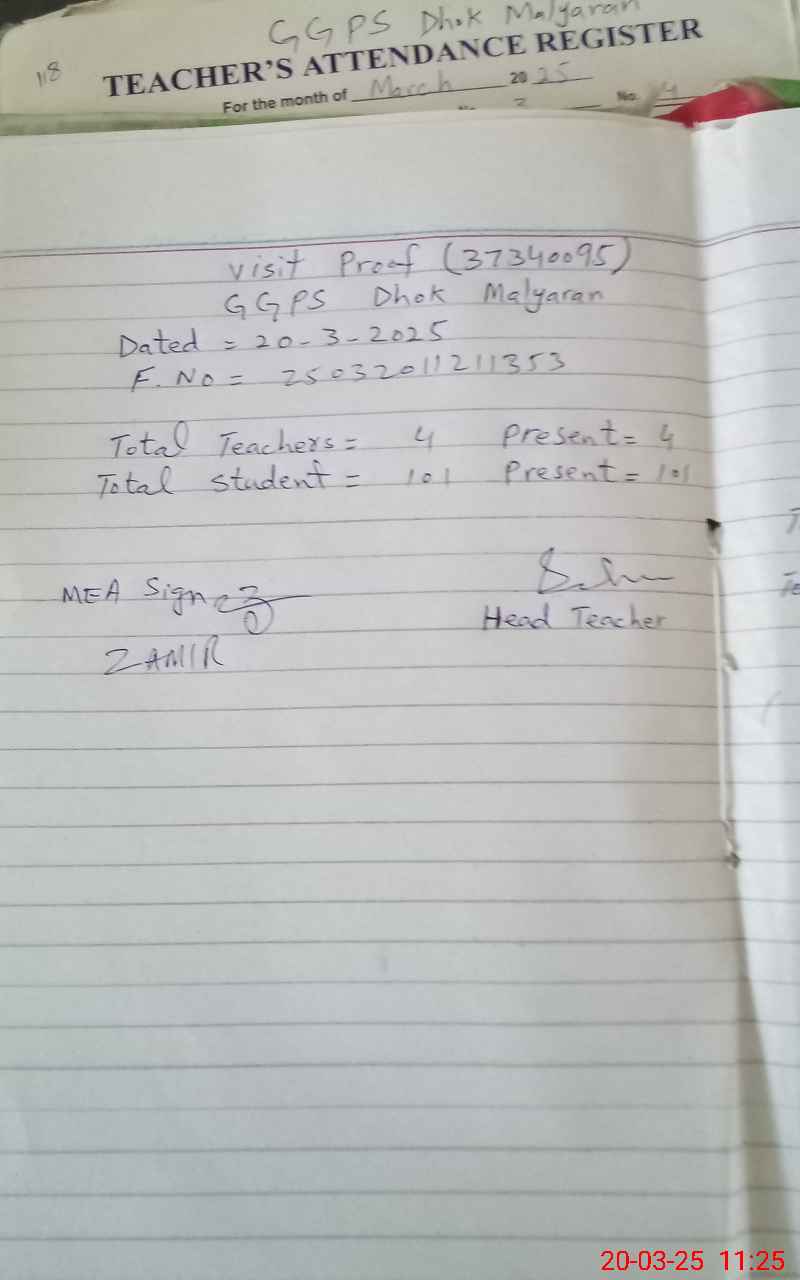 GGPS Dhok Malyaran
118
TEACHER'S ATTENDANCE REGISTER
For the month of March 2025
No. 4
Visit Proof (37340095)
GGPS Dhok Malyaran
Dated = 20-3-2025
F. No = 25032011211353
Total Teachers = 4 Present = 4
Total student = 101 Present = 101
MEA Sign
Head Teacher
ZAMIR
20-03-25 11:25